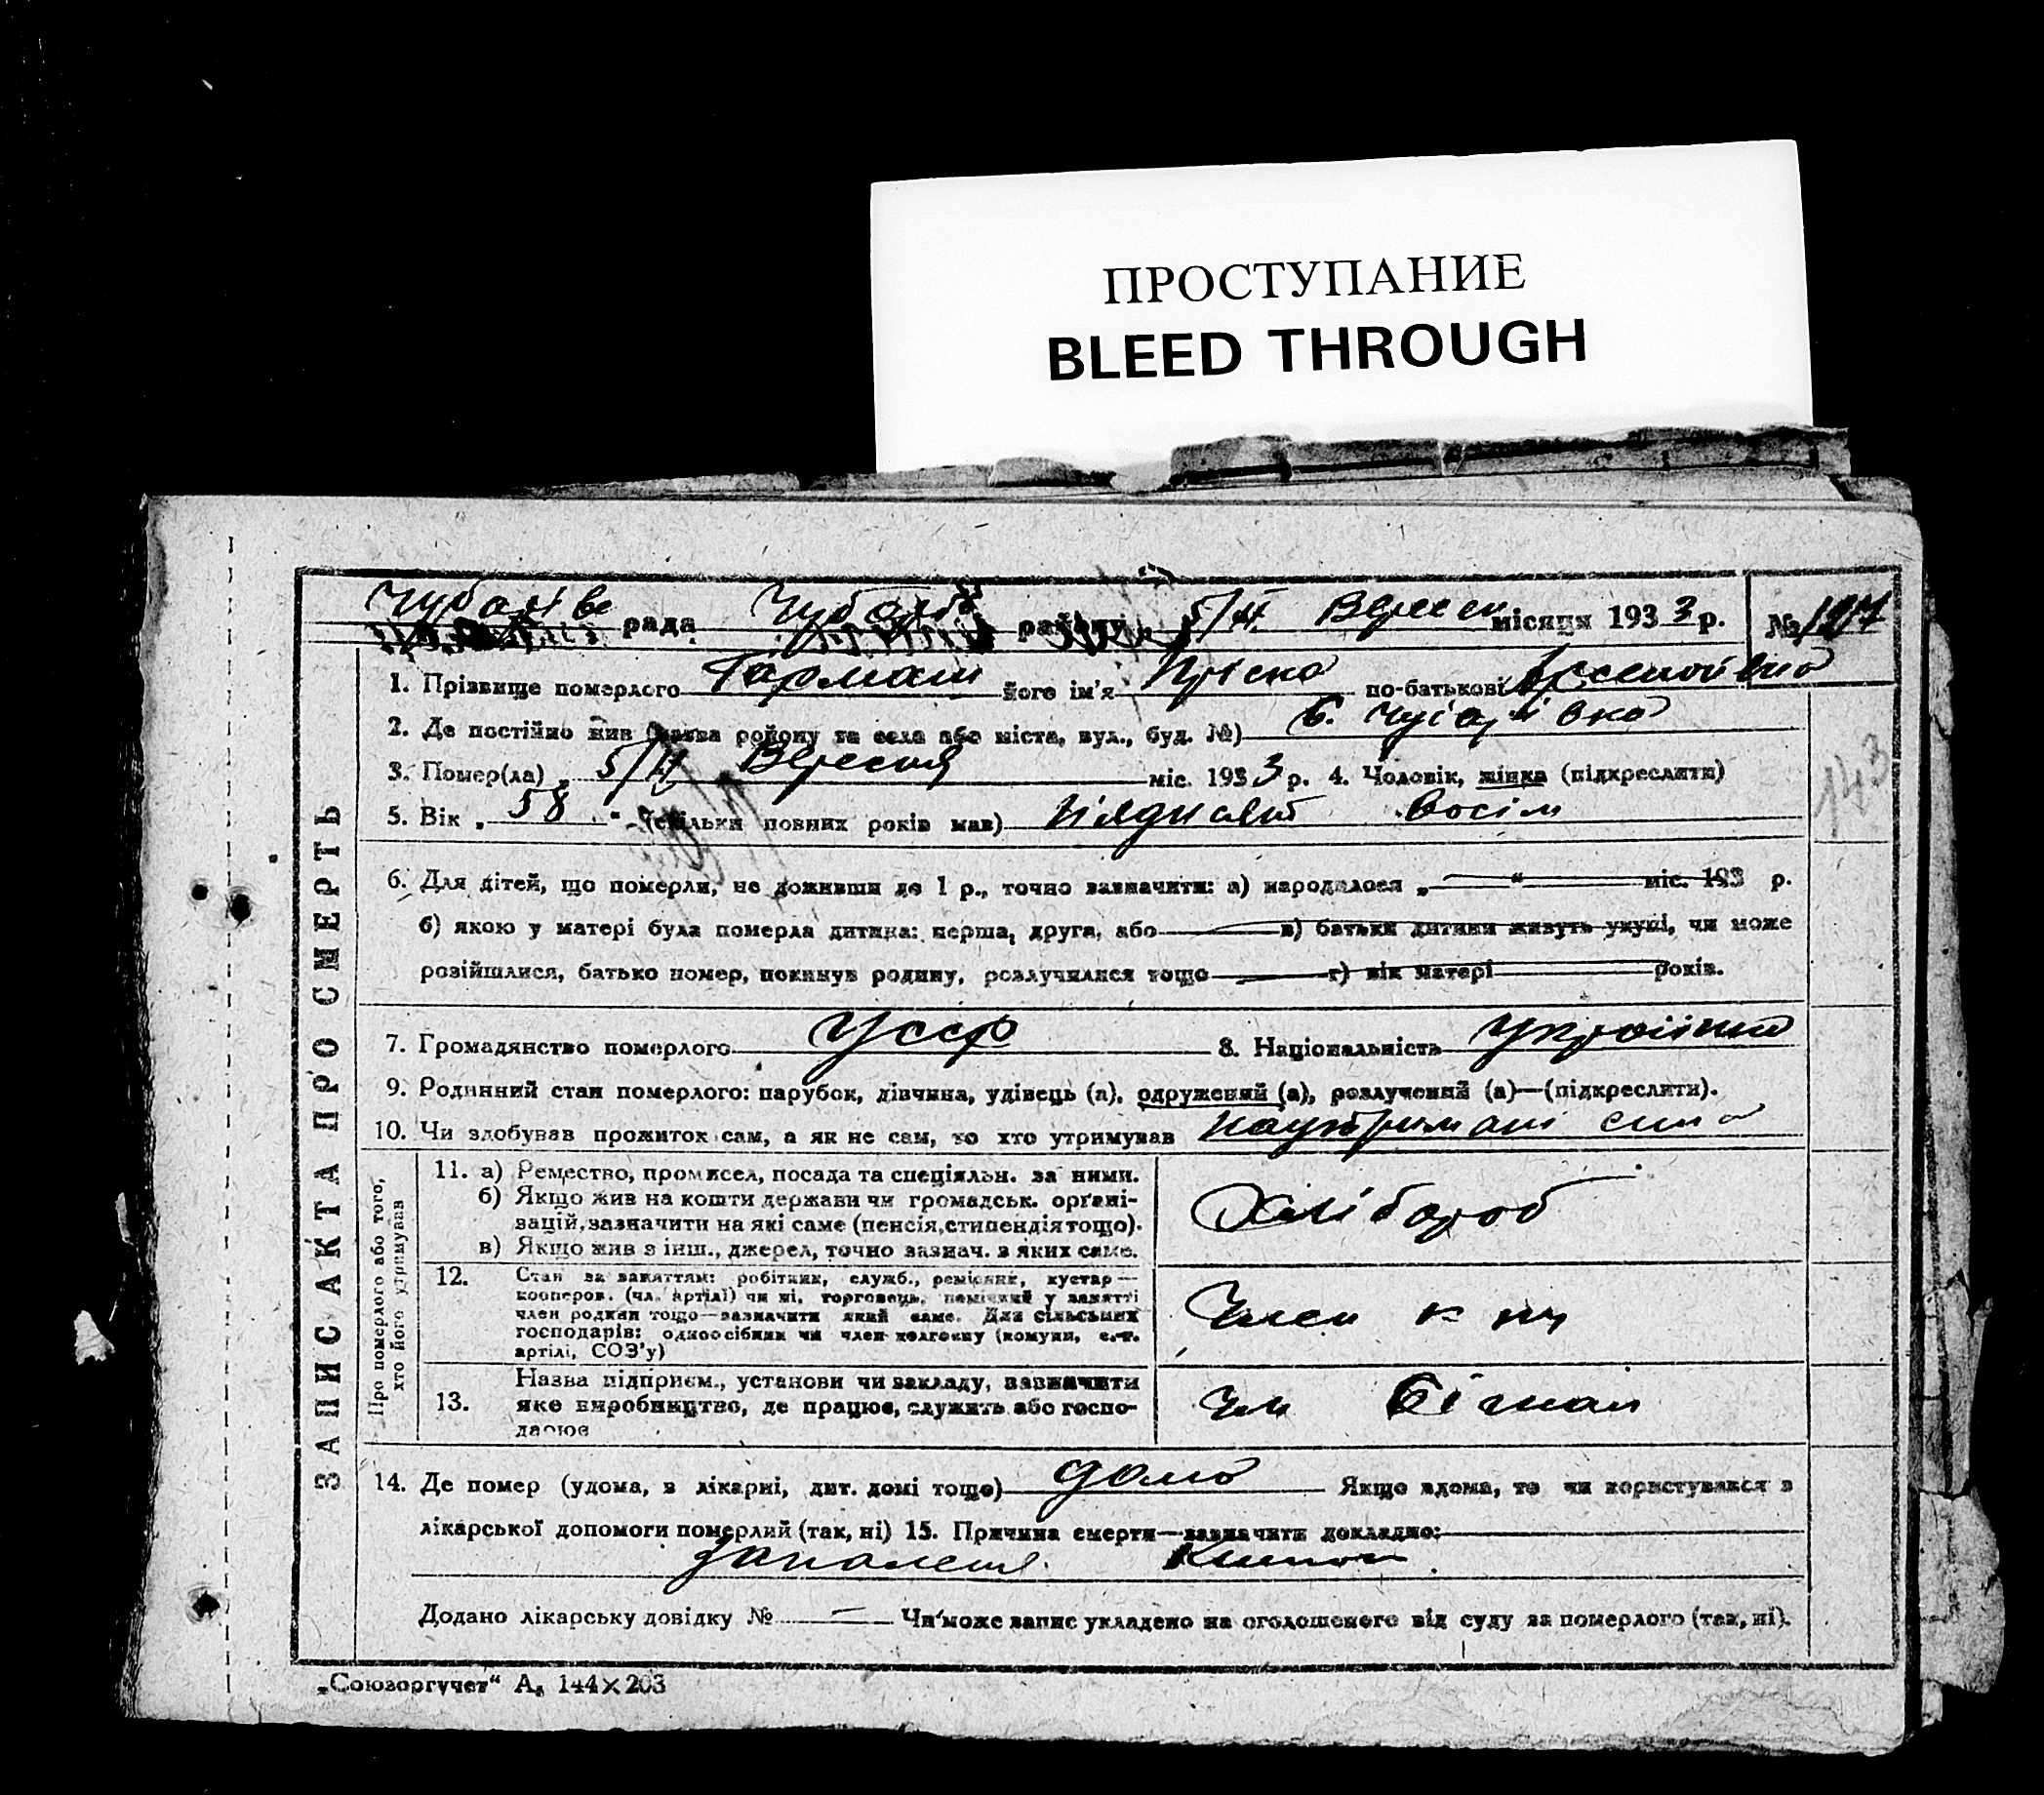 ПРОСТУПАНИЕ
BLEED THROUGH
рада району Вересня місяця 1933 р. №
1. Прізвище померлого Гармаш його ім'я Пріська по-батькові
2. Де постійно жив (назва району та села або міста, вул., буд. №)
3. Помер(ла) „ Вересня міс. 1933 р. 4. Чоловік, жінка (підкреслити)
5. Вік „ 58 “ (скільки повних років мав) вісім
6. Для дітей, що померли, не доживши до 1 р., точно зазначити: а) народилося „ “ міс. 193 р.
б) якою у матері була померла дитина: перша, друга, або в) батьки дитини живуть укупі, чи може
розійшлися, батько помер, покинув родину, розлучилися тощо г) вік матері років.
7. Громадянство померлого УССР 8. Національність Українка
9. Родинний стан померлого: парубок, дівчина, удівець (а), одружений (а), розлучений (а)—(підкреслити).
10. Чи здобував прожиток сам, а як не сам, то хто утримував на утримані сина
ЗАПИС АКТА ПРО СМЕРТЬ
Про померлого або того, хто його утримував
11. а) Ремество, промисел, посада та спеціяльн. за ними.
б) Якщо жив на кошти держави чи громадськ. організацій, зазначити на які саме (пенсія, стипендія тощо).
в) Якщо жив з інш., джерел, точно зазнач. з яких саме.
Хлібороб
12. Стан за заняттям: робітник, служб., ремісник, кустар—
кооперов. (чл. артілі) чи ні, торговець, помічний у занятті
член родини тощо—зазначити який саме. Для сільських
господарів: одноосібник чи член колгоспу (комуни, с.-г.
артілі, СОЗ'у)
Член
13. Назва підприєм., установи чи закладу, зазначити
яке виробництво, де працює, служить або госпо-
дарює
14. Де помер (удома, в лікарні, дит. домі тощо) дома Якщо вдома, то чи користувався з
лікарської допомоги померлий (так, ні) 15. Причина смерти—зазначити докладно:
запалення кишок
Додано лікарську довідку № — Чи може запис укладено на оголошеного від суду за померлого (так, ні).
„Союзоргучет“ А₅ 144×203